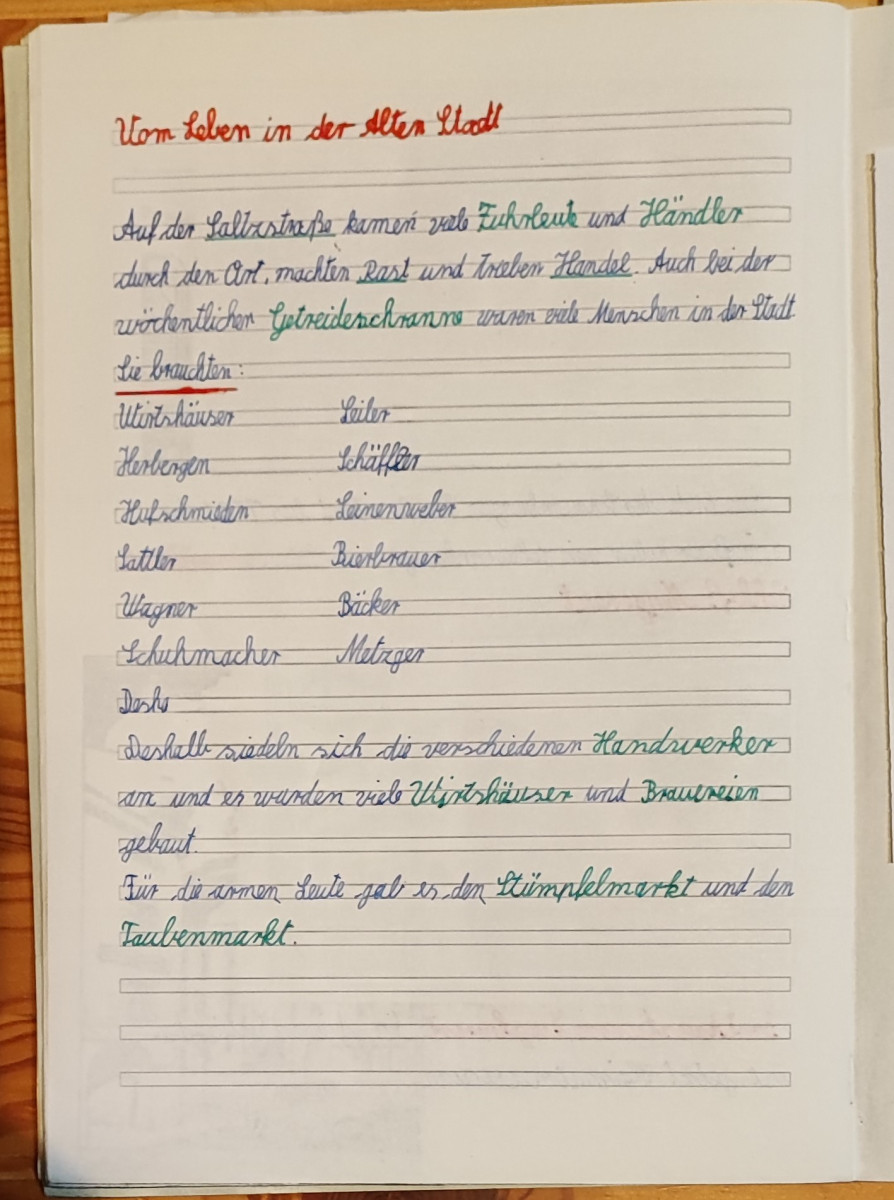 Vom Leben in der Alten Stadt
Auf der Saltzstraße kamen viele Fuhrleute und Händler
durch den Ort, machten Rast und trieben Handel. Auch bei der
wöchentlichen Getreideschranne waren viele Menschen in der Stadt.
Sie brauchten:
Wirtshäuser Seiler
Herbergen Schäffler
Hufschmieden Leinenweber
Sattler Bierbrauer
Wagner Bäcker
Schuhmacher Metzger
Desha
Deshalb siedeln sich die verschiedenen Handwerker
an und es wurden viele Wirtshäuser und Brauereien
gebaut.
Für die armen Leute gab es den Stümpfelmarkt und den
Taubenmarkt.